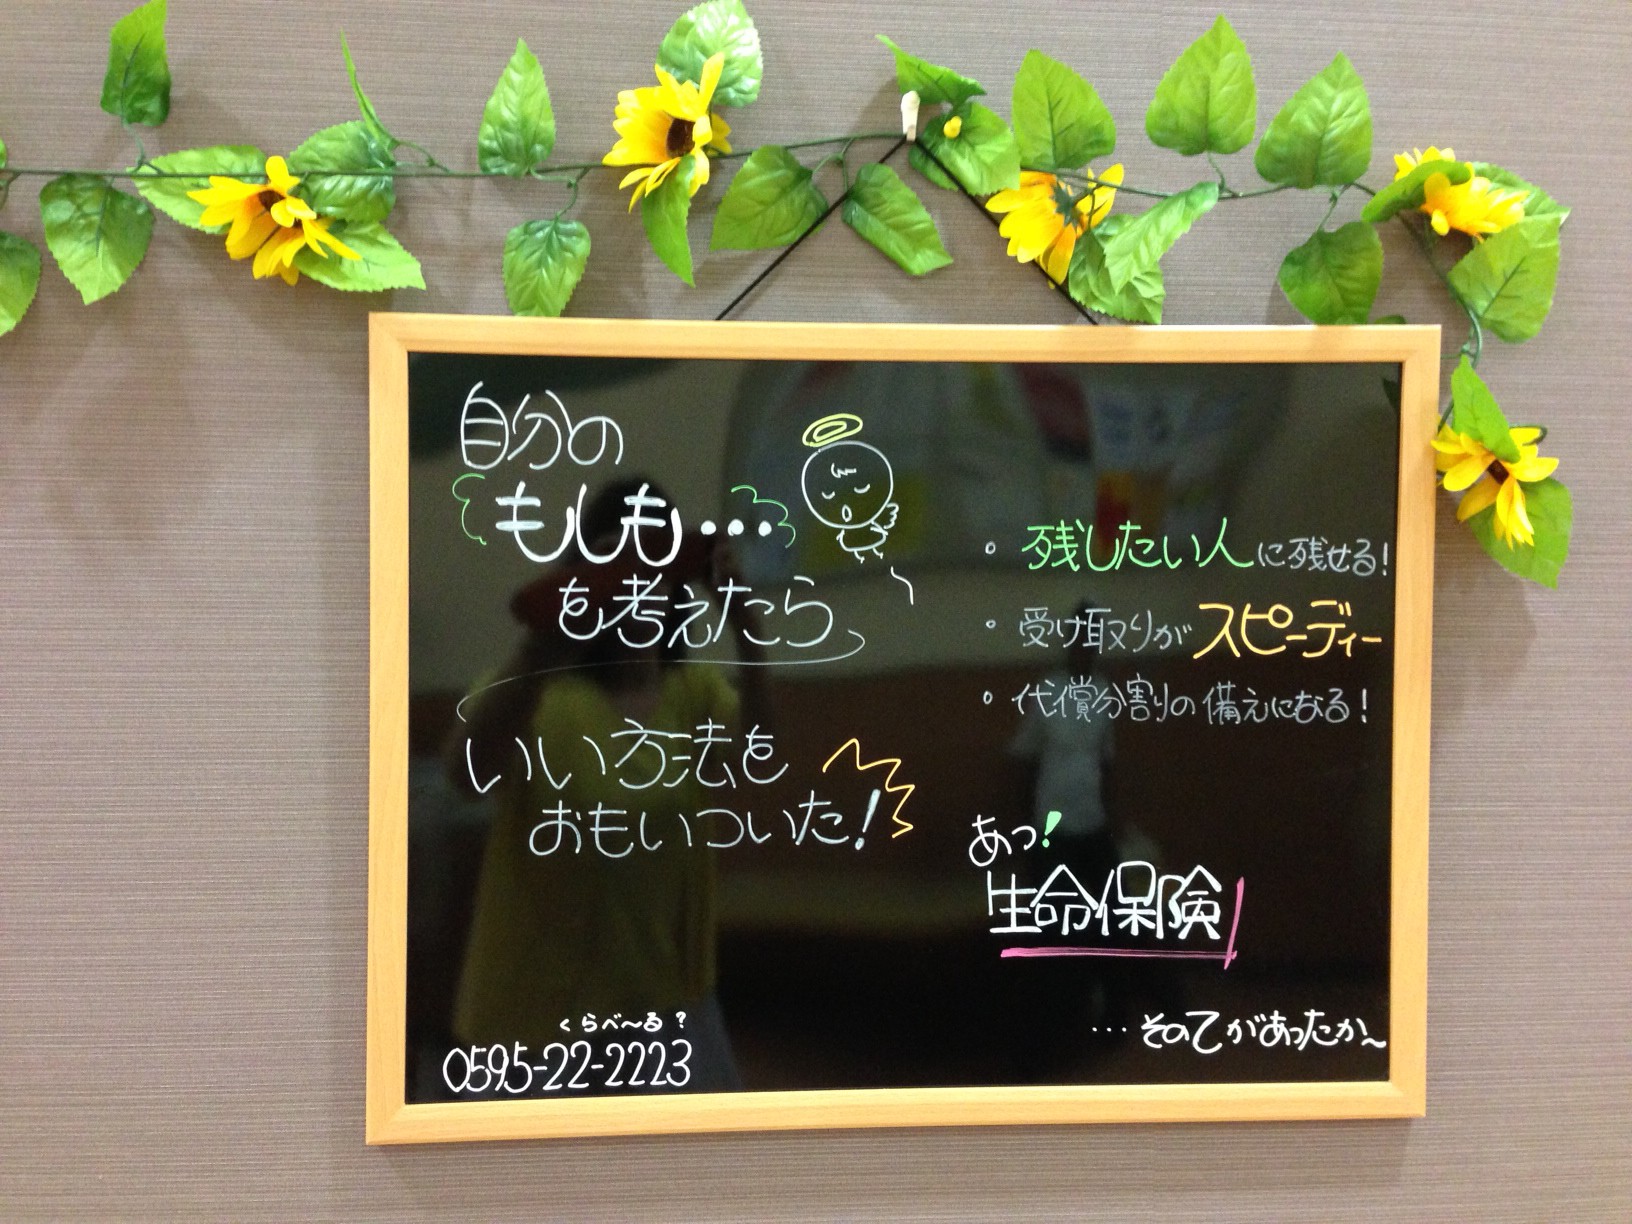 自分の
もしも・・・
を考えたら
いい方法を
おもいついた!
くらべ〜る?
0595-22-2223
・残したい人に残せる!
・受け取りがスピーディー
・代償分割の備えになる!
あっ!
生命保険
…そのてがあったか〜